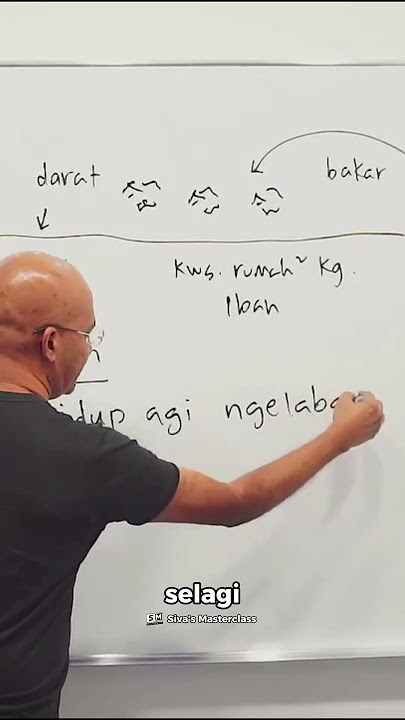 darat
bakar
kws. rumah² kg.
Iban
idup agi ngelaba
selagi
Siva's Masterclass